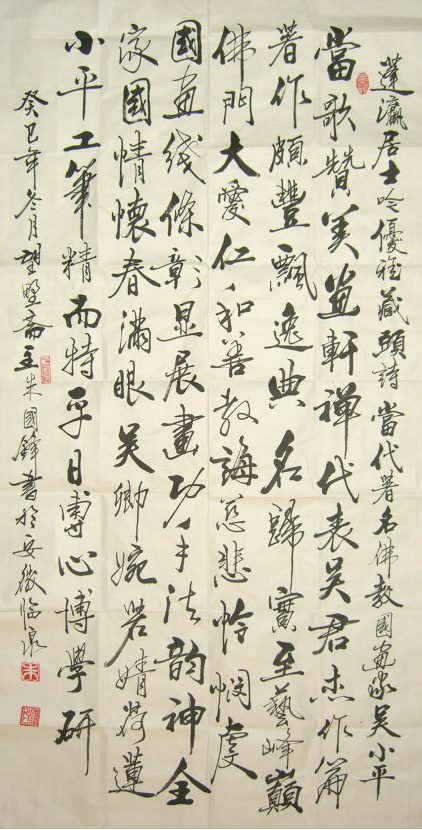 蓬瀛居士吟優雅藏頭詩當代著名佛教國畫家吴小平
當歌贊美畫軒禪代表吴君杰作篇
著作頗豐飄逸典名歸實至藝峰巔
佛門大愛仁和善教誨慈悲怜憫虔
國画綫條彰显展畫功手法韵神全
家國情懷春滿眼吴卿婉若婧荷蓮
小平工筆精而特平日專心博學研
癸巳年冬月望斋主朱國鋒書於安徽臨泉